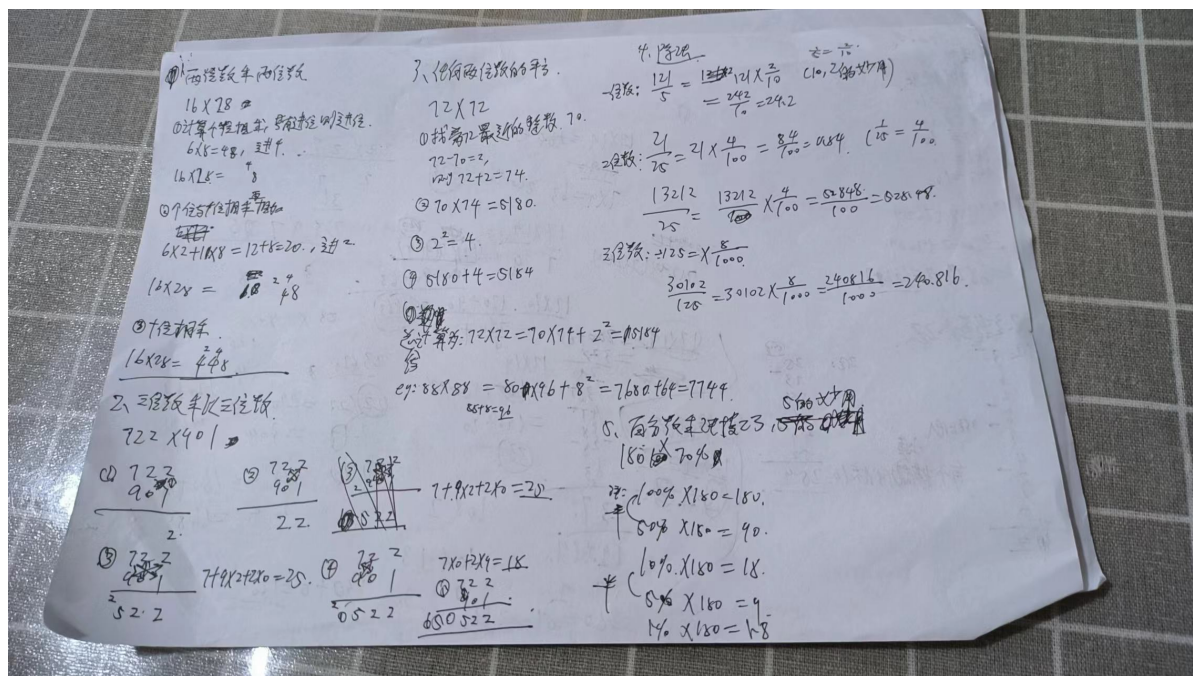 1、两位数乘两位数
16×28
①计算个位相乘,若有进位则进位.
6×8=48, 进4.
16×28= ⁴8
②个位与十位相乘相加
6×2+1×8=12+8=20., 进2
16×28= ² ⁴ 48
③十位相乘.
16×28= 4²4⁴8
2、三位数乘以三位数
722×901
① 722
901
2.
② 722
901
22
7+9×2+2×0=25
③ 722
901
²522
7+9×2+2×0=25.
④ 722
901
²0522
7×0+2×9=18
⑤ 722
901.
650522
3、任何两位数的平方.
72×72
①找离72最近的整数70.
72-70=2,
72+2=74.
②70×74=5180.
③2²=4.
④5180+4=5184
总计算为:72×72=70×74+2²=5184
eg:88×88=80×96+8²=7680+64=7744.
88+8=96
4、除法
1/5=2/10
一位数:121/5=121×2/10 (10,2的妙用)
=242/10=24.2
2位数:21/25=21×4/100=84/100=0.84. (1/25=4/100
13212/25=13212×4/100=52848/100=528.48.
三位数:÷125=×8/1000
30102/125=30102×8/1000=240816/1000=240.816.
5、百分数乘
5的妙用
180×70%
注:100%×180=180.
半
50%×180=90.
10%×180=18.
半
5%×180=9.
1%×180=1.8